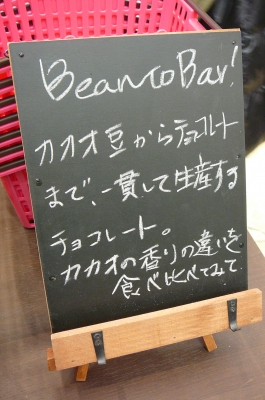 Bean to Bar!
カカオ豆からチョコレート
まで、一貫して生産する
チョコレート。
カカオの香りの違いを
食べ比べてみて